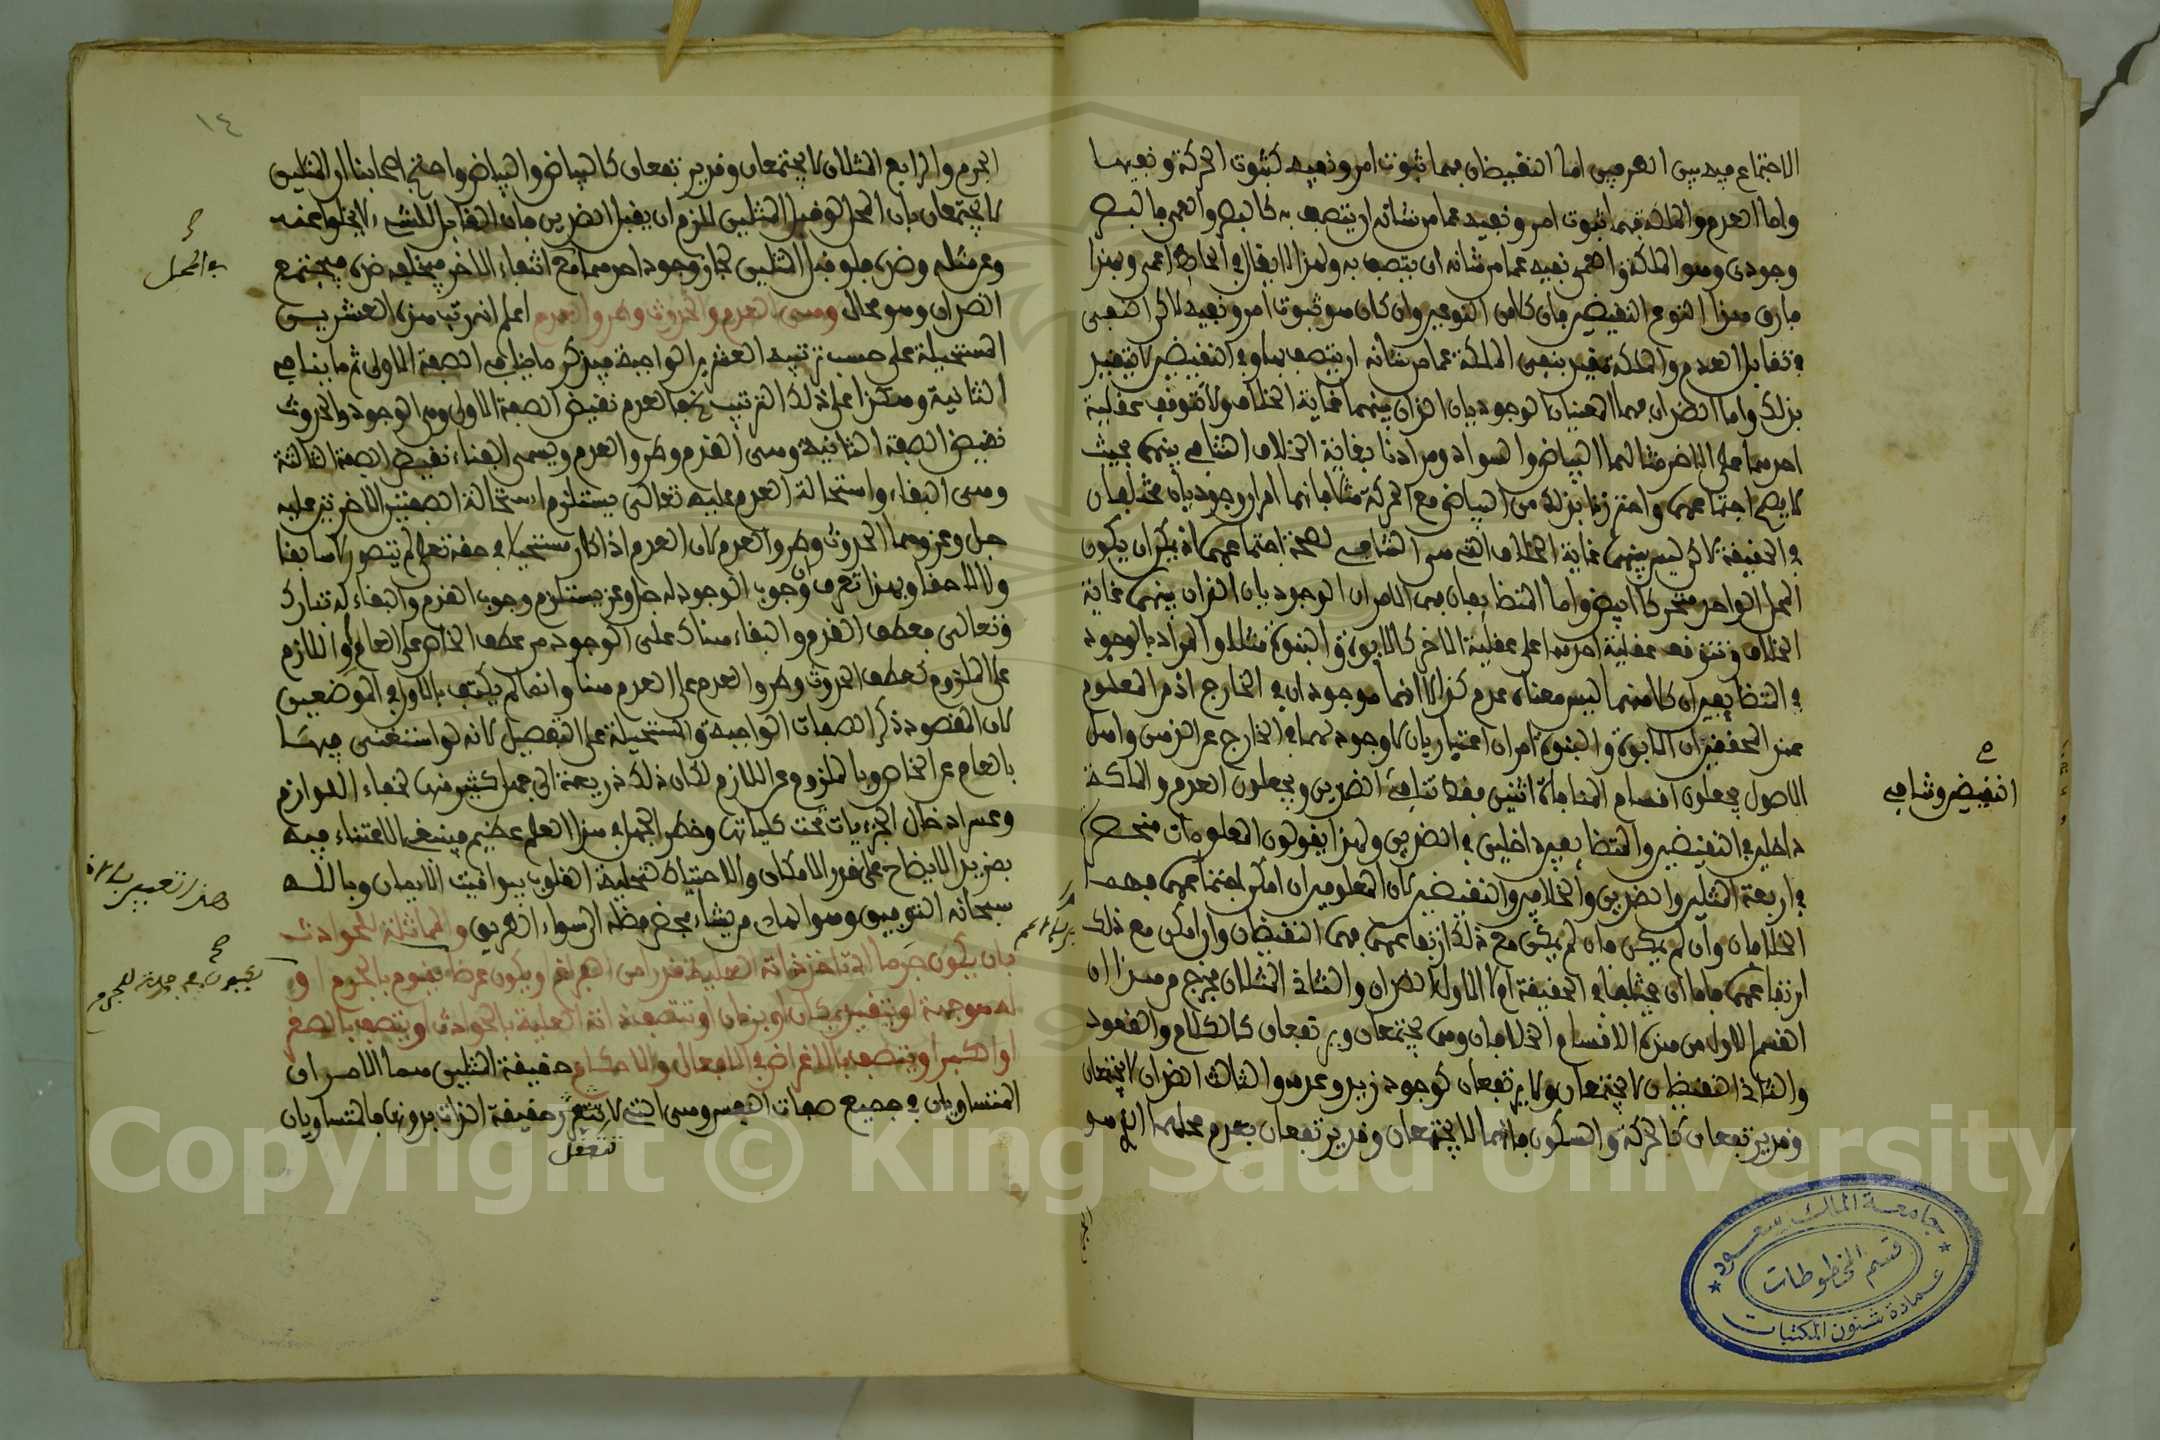 الاجتماع فيه بين العرضين اما النقيضان فهما ثبوت امر ونفيه كثبوت الحركة ونفيها
واما العدم والملكة فهما ثبوت امر ونفيه عما من شانه ان يتصف به كالبصر والعمى فالبصر
وجودي وهو الملكة والعمى نفيه عما من شانه ان يتصف به ولهذا لا يقال في الحائط اعمى وبهذا
فارق هذا النوع النقيضين فان كلا من النوعين وان كان هو ثبوت امر ونفيه لاكن النفي
في تقابل العدم والملكة مقيد بنفي الملكة عما من شانه ان يتصف بها وفي النقيضين لا يتقيد
بذلك واما الضدان فهما المعنيان الوجوديان اللذان بينهما غاية الخلاف ولا تتوقف عقلية
احدهما على الاخر مثالهما البياض والسواد ومرادنا بغاية الخلاف التنافي بينهما بحيث
لا يصح اجتماعهما واحترزنا بذلك من البياض مع الحركة مثلا فانهما امران وجوديان مختلفان
في الحقيقة لاكن ليس بينهما غاية الخلاف التي هي التنافي لصحة اجتماعهما اذ يمكن ان يكون
المحل الواحد متحركا ابيض واما المتضايفان فهما الامران الوجوديان اللذان بينهما غاية
الخلاف وتتوقف عقلية احدهما على عقلية الاخر كالابوة والبنوة مثلا والمراد بالوجود
في المتضايفين ان كلا منهما ليس معناه عدم كذا لا انهما موجودان في الخارج اذ من المعلوم
عند المحققين ان الابوة والبنوة امران اعتباريان لا وجود لهما في الخارج عن الذهن واهل
الاصول يجعلون اقسام المنافاة اثنين فقط تنافي الضدين ويجعلون العدم والملكة
داخلين في النقيضين والمتضايفين داخلين في الضدين ولهذا يقولون المعلومات منحصرة
في اربعة المثلين والضدين والخلافين والنقيضين لان المعلومين ان امكن اجتماعهما فهما
الخلافان وان لم يمكن فان لم يمكن مع ذلك ارتفاعهما فهما النقيضان وان امكن مع ذلك
ارتفاعهما فاما ان يختلفا في الحقيقة ام لا الاول الضدان والثاني المثلان فخرج من هذا ان
القسم الاول من هذه الاقسام الخلافان وهما يجتمعان ويرتفعان كالكلام والقعود
والثاني النقيضان لا يجتمعان ولا يرتفعان كوجود زيد وعدمه والثالث الضدان لا يجتمعان
وقد يرتفعان كالحركة والسكون فانهما لا يجتمعان وقد يرتفعان بعدم محلهما الذي هو
النقيضين وتنافي
جامعة الملك سعود
قسم المخطوطات
عمادة شئون المكتبات
١٤
الجرم والرابع المثلان لا يجتمعان وقد يرتفعان كالبياض والبياض واحتج اصحابنا ان المثلين
لا يجتمعان بان المحل لو قبل المثلين للزم ان يقبل الضدين فان القابل للشيء لا يخلو عنه
وعن مثله وضده فلو قبل المثلين لجاز وجود احدهما مع انتفاء الاخر فيخلفه ضده فيجتمع
الضدان وهو محال وهي العدم والحدوث وطرو العدم اعلم انه رتب هذه العشرين
المستحيلة على حسب ترتيبه العشرين الواجبة فيذكر ما ينافي الصفة الاولى ثم ما ينافي
الثانية وهكذا على ذلك الترتيب فالعدم نقيض الصفة الاولى وهي الوجود والحدوث
نقيض الصفة الثانية وهي القدم وطرو العدم ويسمى الفناء نقيض الصفة الثالثة
وهي البقاء واستحالة العدم عليه تعالى يستلزم استحالة الصفتين الاخرتين عليه
جل وعز وهما الحدوث وطرو العدم لان العدم اذا كان مستحيلا في حقه تعالى لم يتصور لا سابقا
ولا لاحقا وبهذا تعرف ان وجوب الوجود له جل وعز يستلزم وجوب القدم والبقاء له تبارك
وتعالى فعطف القدم والبقاء هناك على الوجود من عطف الخاص على العام او اللازم
على الملزوم كعطف الحدوث وطرو العدم على العدم هنا وانما لم يكتف بالاول في الموضعين
لان المقصود ذكر الصفات الواجبة والمستحيلة على التفصيل لانه لو استغنى فيها
بالعام عن الخاص وبالملزوم عن اللازم لكان ذلك ذريعة الى جهل كثير منها لخفاء اللوازم
وعسر ادخال الجزئيات تحت كلياتها وخطر الجهل في هذا العلم عظيم فينبغي الاعتناء فيه
بمزيد الايضاح على قدر الامكان والاحتياط لتحلية القلوب بيواقيت الايمان وبالله
سبحانه التوفيق وهو الهادي من يشاء بمحض فضله الى سواء الطريق والمماثلة للحوادث
بان يكون جرما اي تاخذ ذاته العلية قدرا من الفراغ او يكون عرضا يقوم بالجرم او
له هو جهة او يتقيد بمكان او بزمان او تتصف ذاته العلية بالحوادث او يتصف بالصغر
او الكبر او يتصف بالاغراض في الافعال والاحكام حقيقة المثلين هما الامران
المتساويان في جميع صفات النفس وهي التي لا تتعقل حقيقة الذات بدونها فالمتساويان
تتعقل
في المحل
Copyright © King Saud University